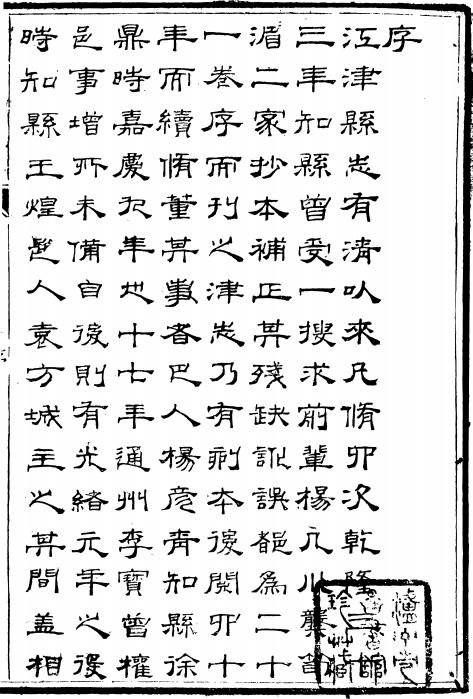 序
江津縣志有清以來凡脩四次乾隆
三年知縣曾受一搜求前輩楊几川龔
湄二家抄本補正其殘缺訛誤都為二十
一卷序而刊之津志乃有刻本後閱四十
年而續脩董其事者巴人楊彥青知縣徐
鼎時嘉慶九年也十七年通州李寶曾權
邑事增所未備自後則有光緒元年之役
時知縣王煌邑人袁方城主之其間蓋相